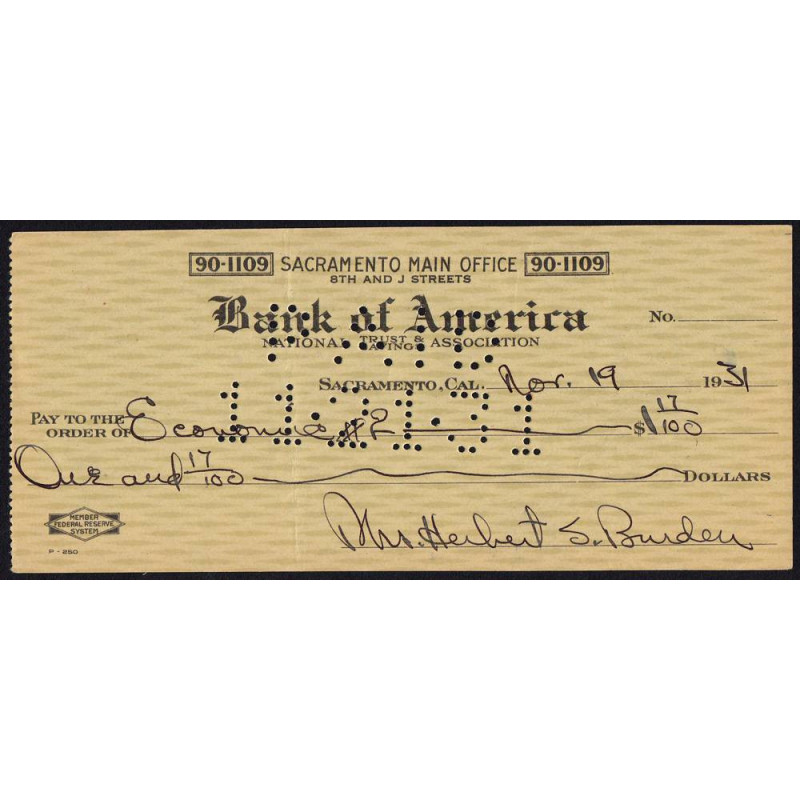 90-1109 SACRAMENTO MAIN OFFICE 90-1109
8TH AND J STREETS
Bank of America
No.
NATIONAL TRUST & SAVINGS ASSOCIATION
SACRAMENTO, CAL. Nov. 19 1931
PAY TO THE ORDER OF #2 $1 17/100
One and 17/100 DOLLARS
MEMBER
FEDERAL RESERVE
SYSTEM
Mrs. Herbert S. Burden
P-250